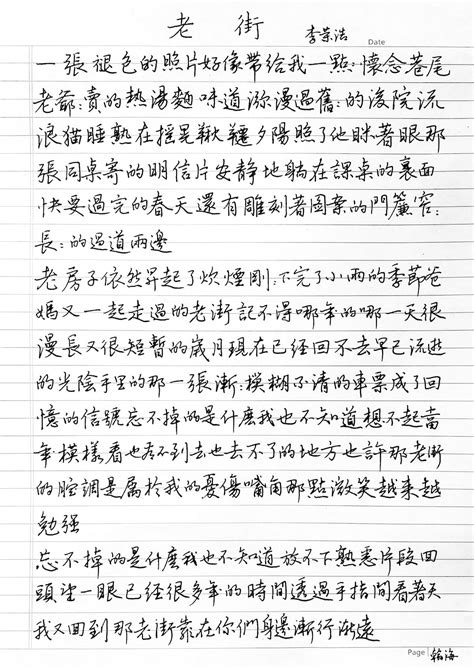 老街 李榮浩
Date
一張褪色的照片好像帶給我一點:懷念巷尾
老爺:賣的熱湯麵味道瀰漫過舊:的後院流
浪猫睡熟在搖晃鞦韆夕陽照了他眯著眼那
張同桌寄的明信片安靜地躺在課桌的裏面
快要過完的春天還有雕刻著圖案的門簾窄:
長:的過道兩邊
老房子依然昇起了炊煙剛:下完了小雨的季節爸
媽又一起走過的老街記不得哪年的哪一天很
漫長又很短暫的歲月現在已經回不去早已流逝
的光陰手里的那一張漸:模糊不清的車票成了回
憶的信號忘不掉的是什麼我也不知道想不起當
年模樣看也看不到去也去不了的地方也許那老街
的腔調是屬於我的憂傷嘴角那點微笑越来越
勉强
忘不掉的是什麼我也不知道放不下熟悉片段回
頭望一眼已經很多年的時間透過手指間看著天
我又回到那老街靠在你們身邊漸行漸遠
Page